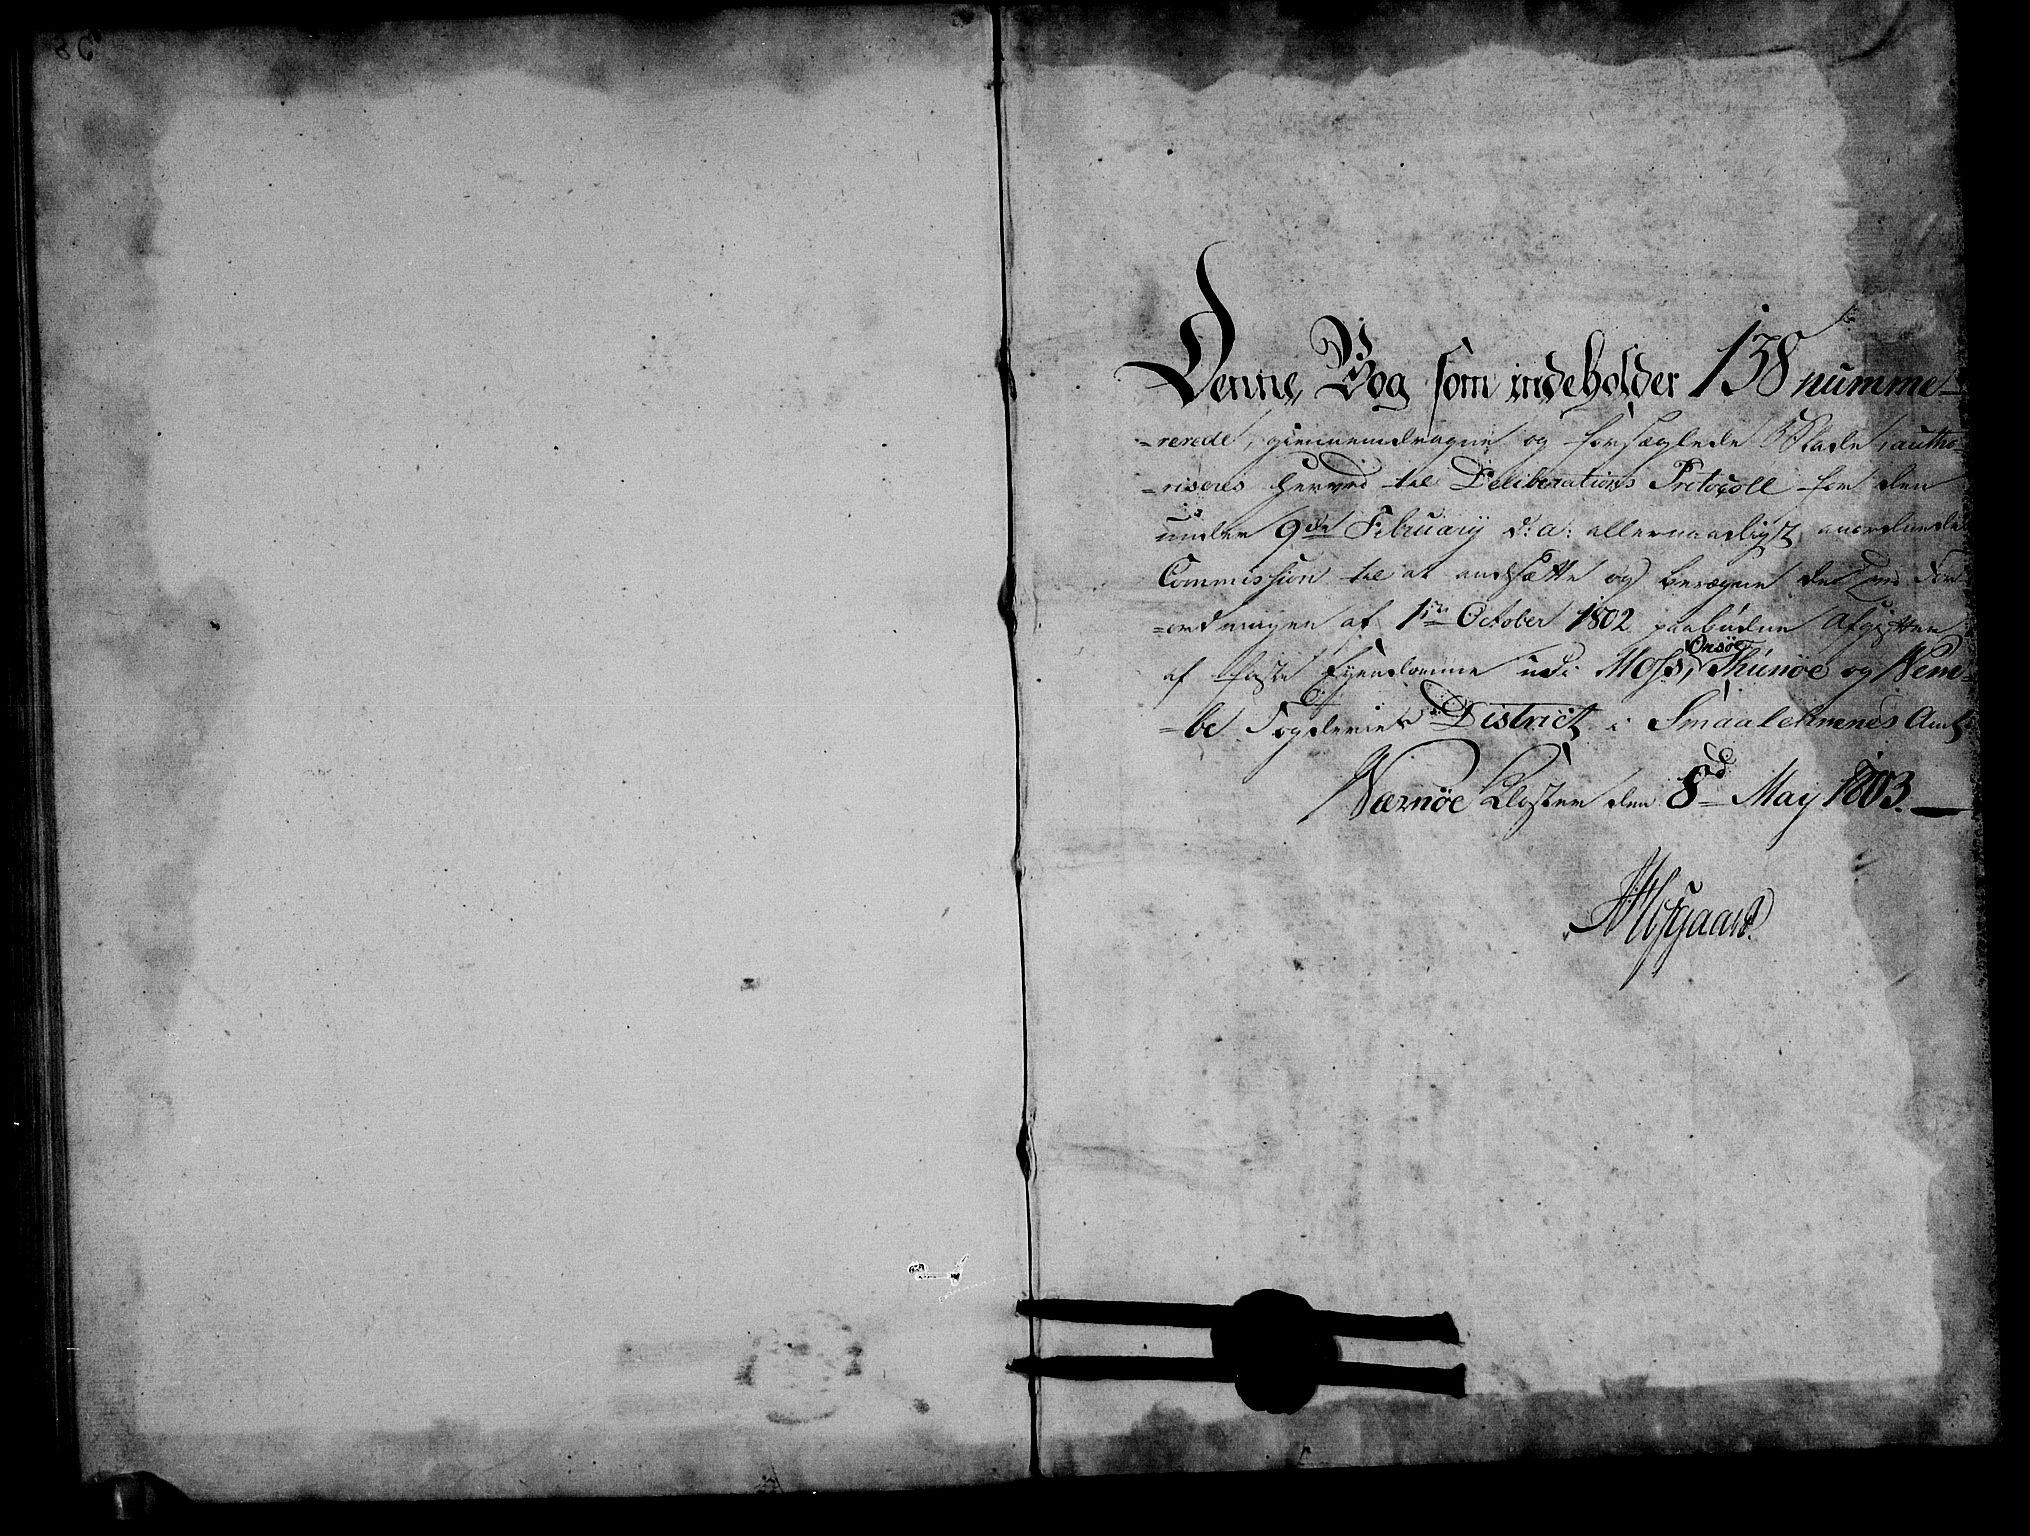 Denne Bog som indeholder 138 numme-
-rerede, giennemdragne og forsæglede Blade, autho-
-riseres herved til Deliberations Protocoll for den
under 9de February d: a: allernaadigst anordnede
Commission til at ansætte og beregne de ved For-
-ordningen af 1ste October 1802 paabudne Afgifter
af faste Eyendomme udi Moss, Onsöe, Thunöe og Vem-
-be Fogderies District i Smaalehnenes Amt
Værnöe Kloster den 8d May 1803.